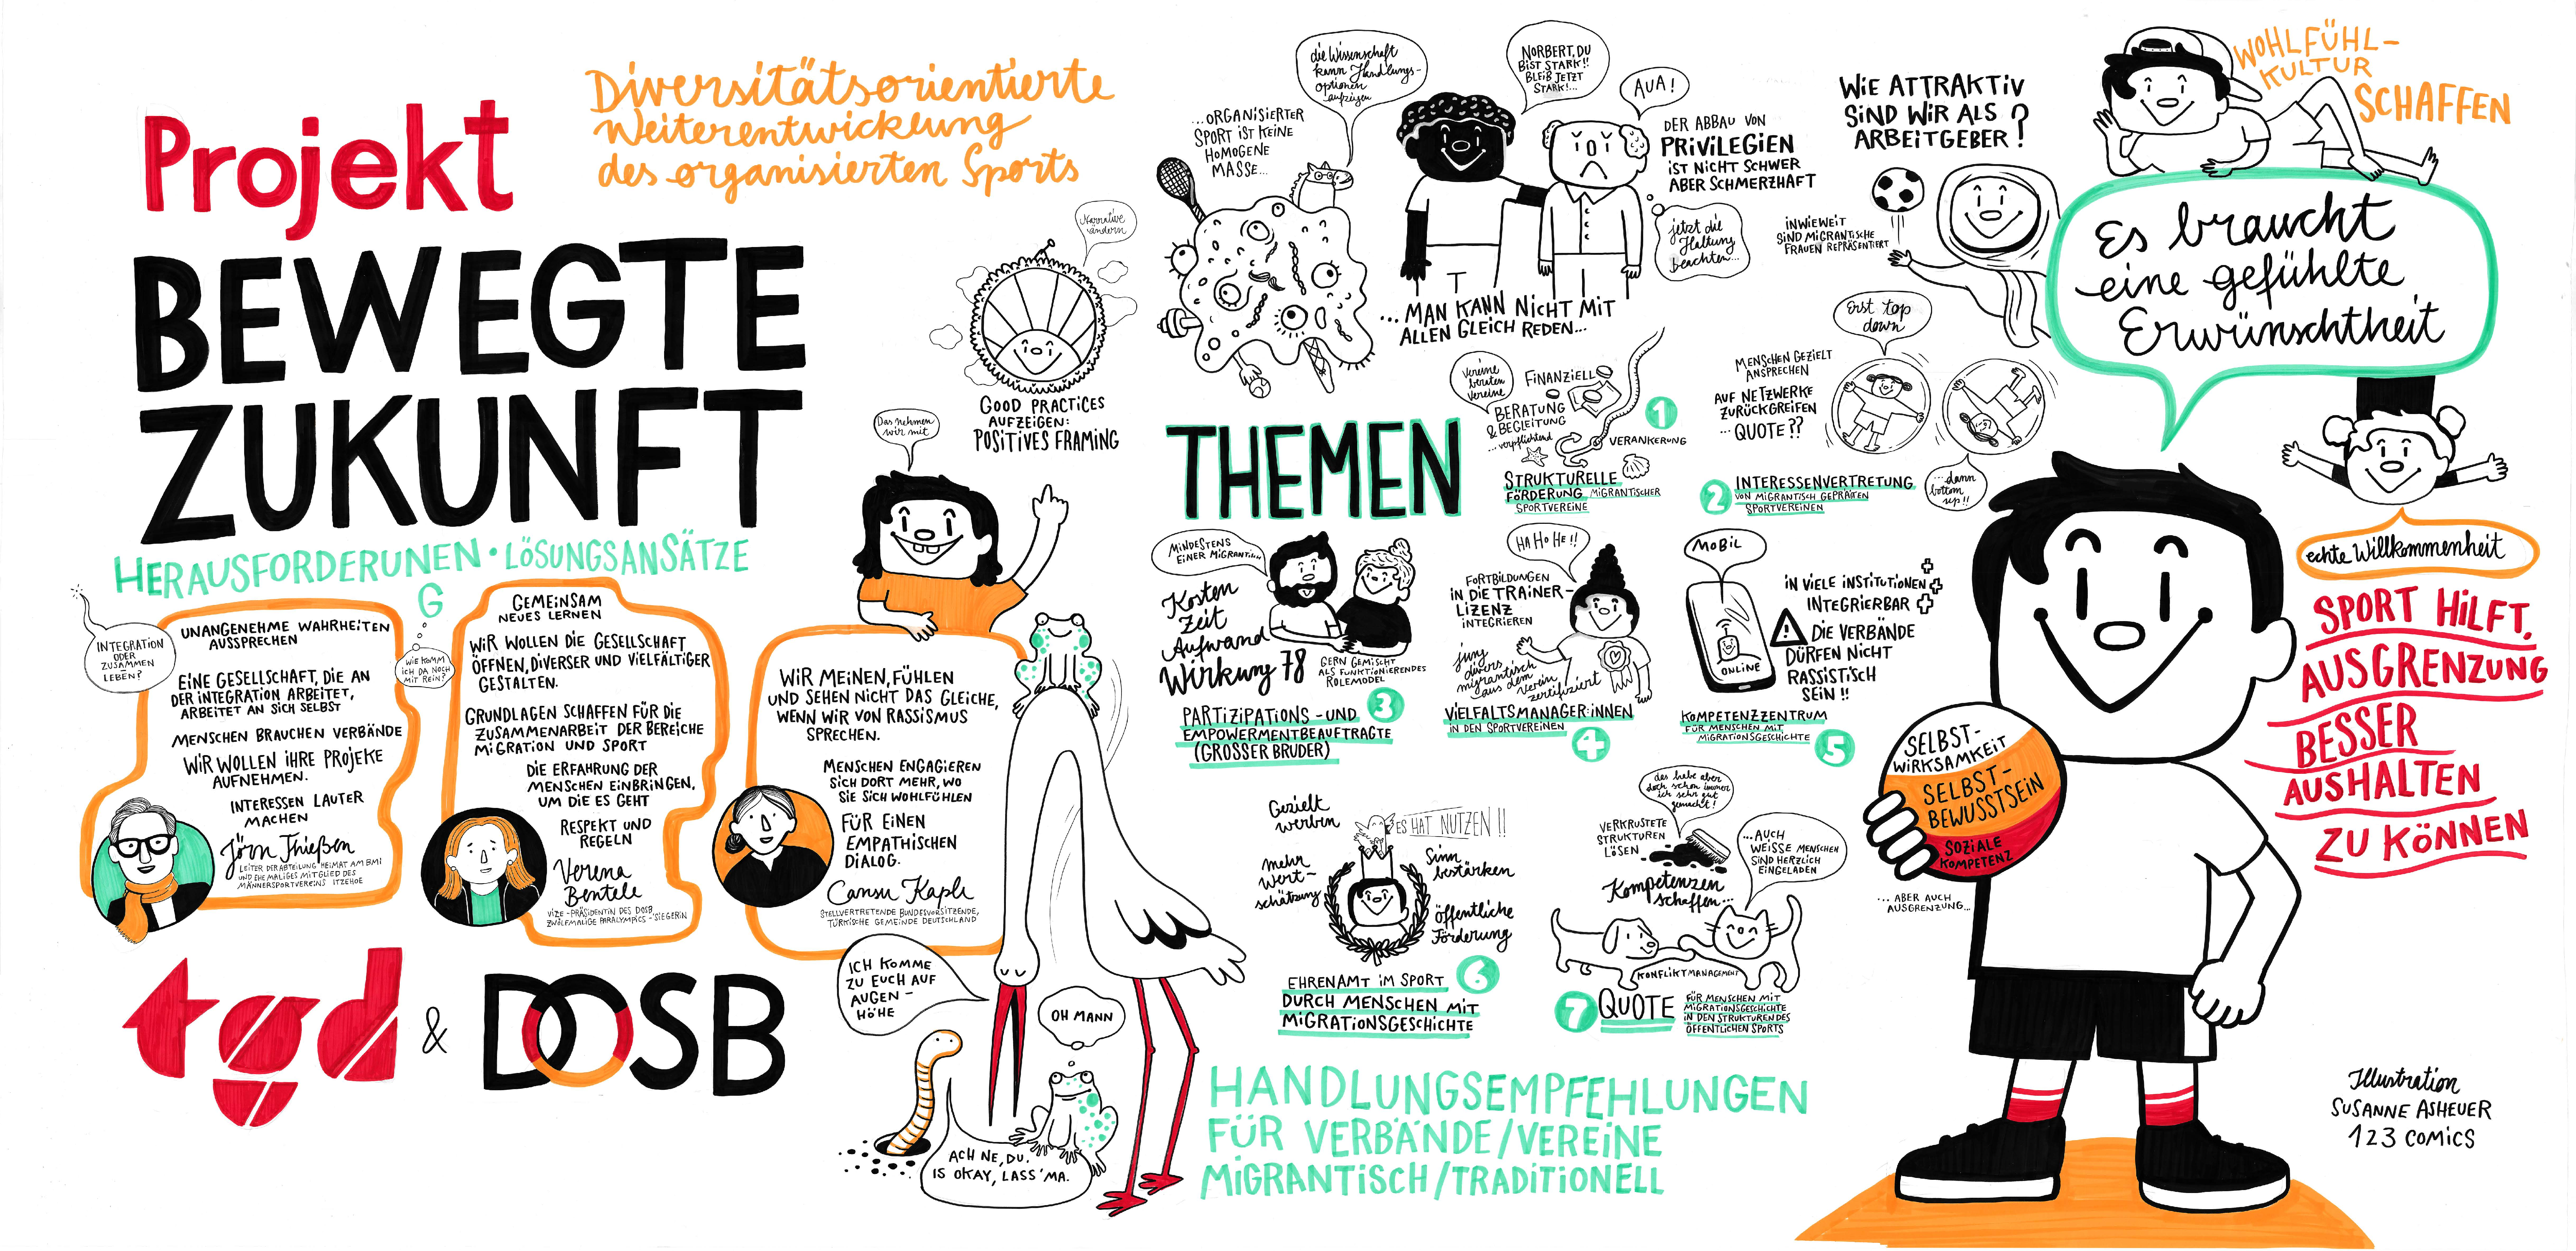 Projekt
BEWEGTE
ZUKUNFT
Diversitätsorientierte
Weiterentwicklung
des organisierten Sports
HERAUSFORDERUNEN • LÖSUNGSANSÄTZE
G
INTEGRATION
ODER
ZUSAMMEN
LEBEN?
UNANGENEHME WAHRHEITEN
AUSSPRECHEN
EINE GESELLSCHAFT, DIE AN
DER INTEGRATION ARBEITET,
ARBEITET AN SICH SELBST
MENSCHEN BRAUCHEN VERBÄNDE
WIR WOLLEN IHRE PROJEKE
AUFNEHMEN.
INTERESSEN LAUTER
MACHEN
Jörn Thießen
LEITER DER ABTEILUNG HEIMAT AM BMI
UND EHEMALIGES MITGLIED DES
MÄNNERSPORTVEREINS ITZEHOE
WIE KOMM
ICH DA NOCH
MIT REIN?
GEMEINSAM
NEUES LERNEN
WIR WOLLEN DIE GESELLSCHAFT
ÖFFNEN, DIVERSER UND VIELFÄLTIGER
GESTALTEN.
GRUNDLAGEN SCHAFFEN FÜR DIE
ZUSAMMENARBEIT DER BEREICHE
MIGRATION UND SPORT
DIE ERFAHRUNG DER
MENSCHEN EINBRINGEN,
UM DIE ES GEHT
RESPEKT UND
REGELN
Verena
Bentele
VIZE-PRÄSIDENTIN DES DOSB
ZWÖLFMALIGE PARALYMPICS-SIEGERIN
Das nehmen
wir mit
WIR MEINEN, FÜHLEN
UND SEHEN NICHT DAS GLEICHE,
WENN WIR VON RASSISMUS
SPRECHEN.
MENSCHEN ENGAGIEREN
SICH DORT MEHR, WO
SIE SICH WOHLFÜHLEN
FÜR EINEN
EMPATHISCHEN
DIALOG.
Cansu Kaplı
STELLVERTRETENDE BUNDESVORSITZENDE,
TÜRKISCHE GEMEINDE DEUTSCHLAND
tgd & DOSB
ICH KOMME
ZU EUCH AUF
AUGEN-
HÖHE
OH MANN
ACH NE, DU.
IS OKAY, LASS'MA.
Narrative
ändern
GOOD PRACTICES
AUFZEIGEN:
POSITIVES FRAMING
...ORGANISIERTER
SPORT IST KEINE
HOMOGENE
MASSE...
die Wissenschaft
kann Handlungs-
optionen
aufzeigen
NORBERT, DU
BIST STARK!!
BLEIB JETZT
STARK!...
AUA!
DER ABBAU VON
PRIVILEGIEN
IST NICHT SCHWER
ABER SCHMERZHAFT
jetzt die
Haltung
beachten...
...MAN KANN NICHT MIT
ALLEN GLEICH REDEN...
WIE ATTRAKTIV
SIND WIR ALS
ARBEITGEBER?
INWIEWEIT
SIND MIGRANTISCHE
FRAUEN REPRÄSENTIERT
WOHLFÜHL-
KULTUR
SCHAFFEN
Es braucht
eine gefühlte
Erwünschtheit
THEMEN
Vereine
beraten
Vereine
FINANZIELL
BERATUNG
& BEGLEITUNG
...verpflichtend
VERANKERUNG
1
STRUKTURELLE
FÖRDERUNG MIGRANTISCHER
SPORTVEREINE
Erst top
down
MENSCHEN GEZIELT
ANSPRECHEN
AUF NETZWERKE
ZURÜCKGREIFEN
...QUOTE??
...dann
bottom
up!!
2 INTERESSENVERTRETUNG
VON MIGRANTISCH GEPRÄGTEN
SPORTVEREINEN
MINDESTENS
EINER MIGRANTISCH
Kosten
Zeit
Aufwand
Wirkung 78
GERN GEMISCHT
ALS FUNKTIONIERENDES
ROLEMODEL
3
PARTIZIPATIONS-UND
EMPOWERMENTBEAUFTRAGTE
(GROSSER BRUDER)
HA HO HE!!
FORTBILDUNGEN
IN DIE TRAINER-
LIZENZ
INTEGRIEREN
jung
divers
migrantisch
aus dem
Verein
zertifiziert
VIELFALTSMANAGER:INNEN
IN DEN SPORTVEREINEN
4
MOBIL
ONLINE
IN VIELE INSTITUTIONEN
INTEGRIERBAR
DIE VERBÄNDE
DÜRFEN NICHT
RASSISTISCH
SEIN!!
KOMPETENZZENTRUM
FÜR MENSCHEN MIT
MIGRATIONSGESCHICHTE
5
Gezielt
werben
ES HAT NUTZEN!!
mehr
Wert-
schätzung
Sinn
bestärken
öffentliche
Förderung
6
EHRENAMT IM SPORT
DURCH MENSCHEN MIT
MIGRATIONSGESCHICHTE
das habe aber
doch schon immer
ich sehr gut
gemacht!
VERKRUSTETE
STRUKTUREN
LÖSEN
...AUCH
WEISSE MENSCHEN
SIND HERZLICH
EINGELADEN
Kompetenzen
schaffen...
KONFLIKTMANAGEMENT
7 QUOTE
FÜR MENSCHEN MIT
MIGRATIONSGESCHICHTE
IN DEN STRUKTUREN DES
ÖFFENTLICHEN SPORTS
HANDLUNGSEMPFEHLUNGEN
FÜR VERBÄNDE/VEREINE
MIGRANTISCH/TRADITIONELL
SELBST-
WIRKSAMKEIT
SELBST-
BEWUSSTSEIN
SOZIALE
KOMPETENZ
...ABER AUCH
AUSGRENZUNG...
echte Willkommenheit
SPORT HILFT,
AUSGRENZUNG
BESSER
AUSHALTEN
ZU KÖNNEN
Illustration
SUSANNE ASHEUER
123 COMICS